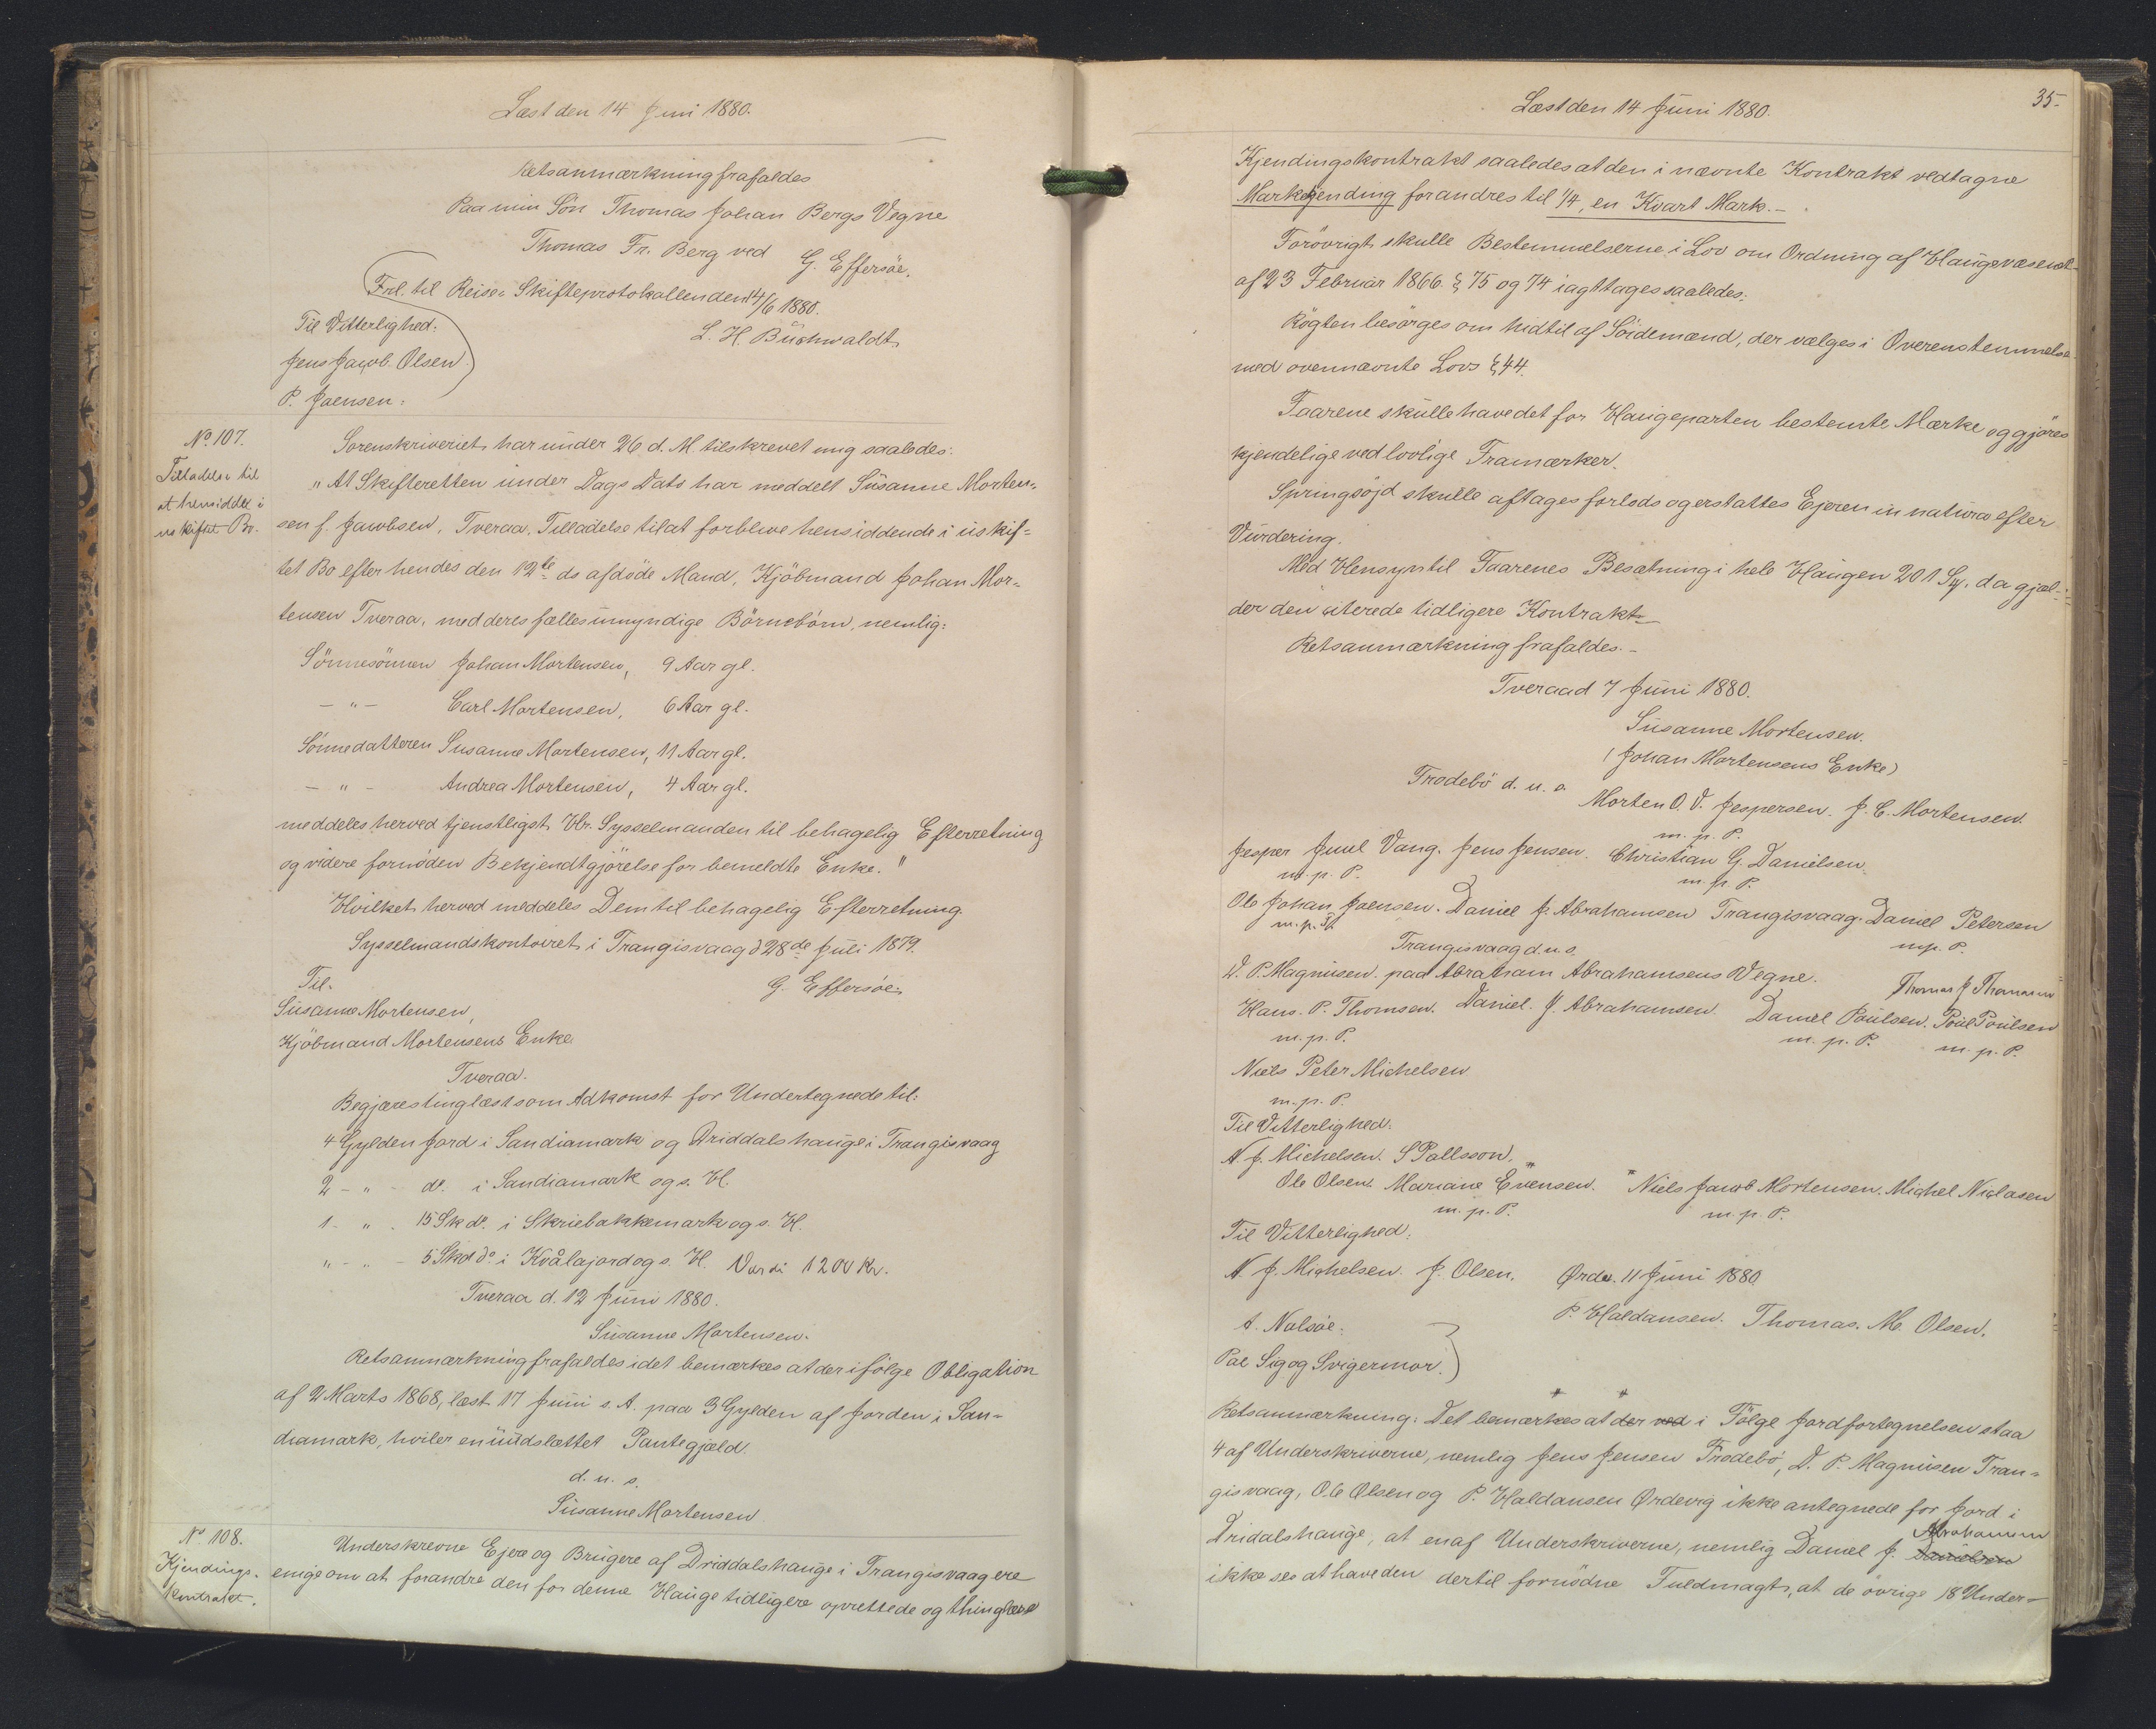 Læst den 14 Juni 1880.
Retsanmærkning frafaldes
Paa min Søn Thomas Johan Bergs Vegne
Thomas Fr. Berg ved G. Effersøe.
Frl. til Reise- Skifteprotokollen den 14/6 1880.
L. H. Buchwaldt
Til Vitterlighed:
Jens Jacob Olsen
P. Joensen:
No 107.
Tilladelse til
at hensidde i
uskiftet Bo.
Sorenskriveriet har under 26 d. M. tilskrevet mig saaledes:
"At Skifteretten under Dags Dato har meddelt Susanne Morten-
sen f. Jacobsen, Tveraa, Tilladelse til at forblive hensiddende i uskif-
tet Bo efter hendes den 12te ds afdöde Mand, Kjöbmand Johan Mor-
tensen Tveraa, med deres fælles umyndige Börnebörn, nemlig:
Sönnesönnen Johan Mortensen, 9 Aar gl.
- " - Carl Mortensen, 6 Aar gl.
Sönnedatteren Susanne Mortensen, 11 Aar gl.
- " - Andrea Mortensen, 4 Aar gl.
meddeles herved tjenstligst Hr. Sysselmanden til behagelig Efterretning
og videre fornöden Bekjendtgjörelse for bemeldte Enke."
Hvilket herved meddeles Dem til behagelig Efterretning.
Sysselmandskontoiret i Trangisvaag d 28de Juli 1879.
G. Effersöe:
Til.
Susanne Mortensen,
Kjöbmand Mortensens Enke
Tveraa.
Begjæres tinglæst som Adkomst for Undertegnede til:
4 Gylden Jord i Sandiamark og Driddalshauge i Trangisvaag
2 - " - do. i Sandiamark og s. H.
1 - " - 15 Sk do. i Skriebakkemark og s. H.
" - " - 5 Sk do i Kvålajord og s. H. Værdi 1200 Kr.
Tveraa d. 12 Juni 1880.
Susanne Mortensen.
Retsanmærkning frafaldes idet bemærkes at der ifölge Obligation
af 2 Marts 1868, læst 17 Juni s. A. paa 3 Gylden af Jorden i San-
diamark, hviler en uudslettet Pantegjæld.
d. u. s.
Susanne Mortensen
No 108.
Kjendings-
kontrakt.
Underskrevne Ejere og Brugere af Driddalshauge i Trangisvaag ere
enige om at forandre den for denne Hauge tidligere oprettede og thinglæste
35.
Læst den 14 Juni 1880.
Kjendingskontrakt saaledes at den i nævnte Kontrakt vedtagne
Markekjending forandres til 1/4, en Kvart Mark.-
Forövrigt skulle Bestemmelserne i Lov om Ordning af Haugevæsenet
af 23 Februar 1866 § 75 og 74 iagttages saaledes:
Rögten besörges om hidtil af Söidemænd, der vælges i Overenstemmelse
med ovennævnte Lovs § 44.
Faarene skulle have det for Haugeparten bestemte Mærke og gjöres
kjendelige ved lovlige Framærker.
Springsöjd skulle aftages forlods og erstattes Ejeren in natura efter
Vurdering.
Med Hensyn til Faarenes Besætning i hele Haugen 201 Sy. da gjæl-
der den citerede tidligere Kontrakt.
Retsanmærkning frafaldes.-
Tveraa d 7 Juni 1880.
Susanne Mortensen.
(Johan Mortensens Enke)
Frodebö d. u. s.
Morten O. V. Jespersen. J. C. Mortensen.
m. p. P.
Jesper Juul Vang. Jens Jensen. Christian G. Danielsen.
m. p. P. m. p. P.
Ole Johan Joensen. Daniel J. Abrahamsen Trangisvaag. Daniel Petersen
m. p. P. m. p. P.
Trangisvaag d. u. s.
D. P. Magnusen. paa Abraham Abrahamsens Vegne. Thomas J Thomasen
Hans. P. Thomsen. Daniel. J. Abrahamsen Daniel Poulsen. Poul Poulsen
m. p. P. m. p. P. m. p. P.
Niels Peter Michelsen
m. p. P.
Til Vitterlighed:
N. J. Michelsen. S Pallsson.
Ole Olsen. Mariane Evensen. Niels Jacob Mortensen. Michel Niclasen
m. p. P. m. p. P.
Til Vitterlighed:
N. J. Michelsen. J. Olsen. Ørde. 11 Juni 1880
P. Haldansen. Thomas. M. Olsen.
A. Nolsöe.
Pal Sig og Svigermor.
Retsanmærkning: Det bemærkes at der ved i Fölge Jordfortegnelsen staa
4 af Underskriverne, nemlig Jens Jensen Frodebö, D. P. Magnusen Tran-
gisvaag, Ole Olsen og P. Haldansen Ørdevig ikke antegnede for Jord i
Dridalshauge, at en af Underskriverne, nemlig Daniel J. Danielsen Abrahamsen
ikke ses at have den dertil fornödne Fuldmagt, at de övrige 18 Under-